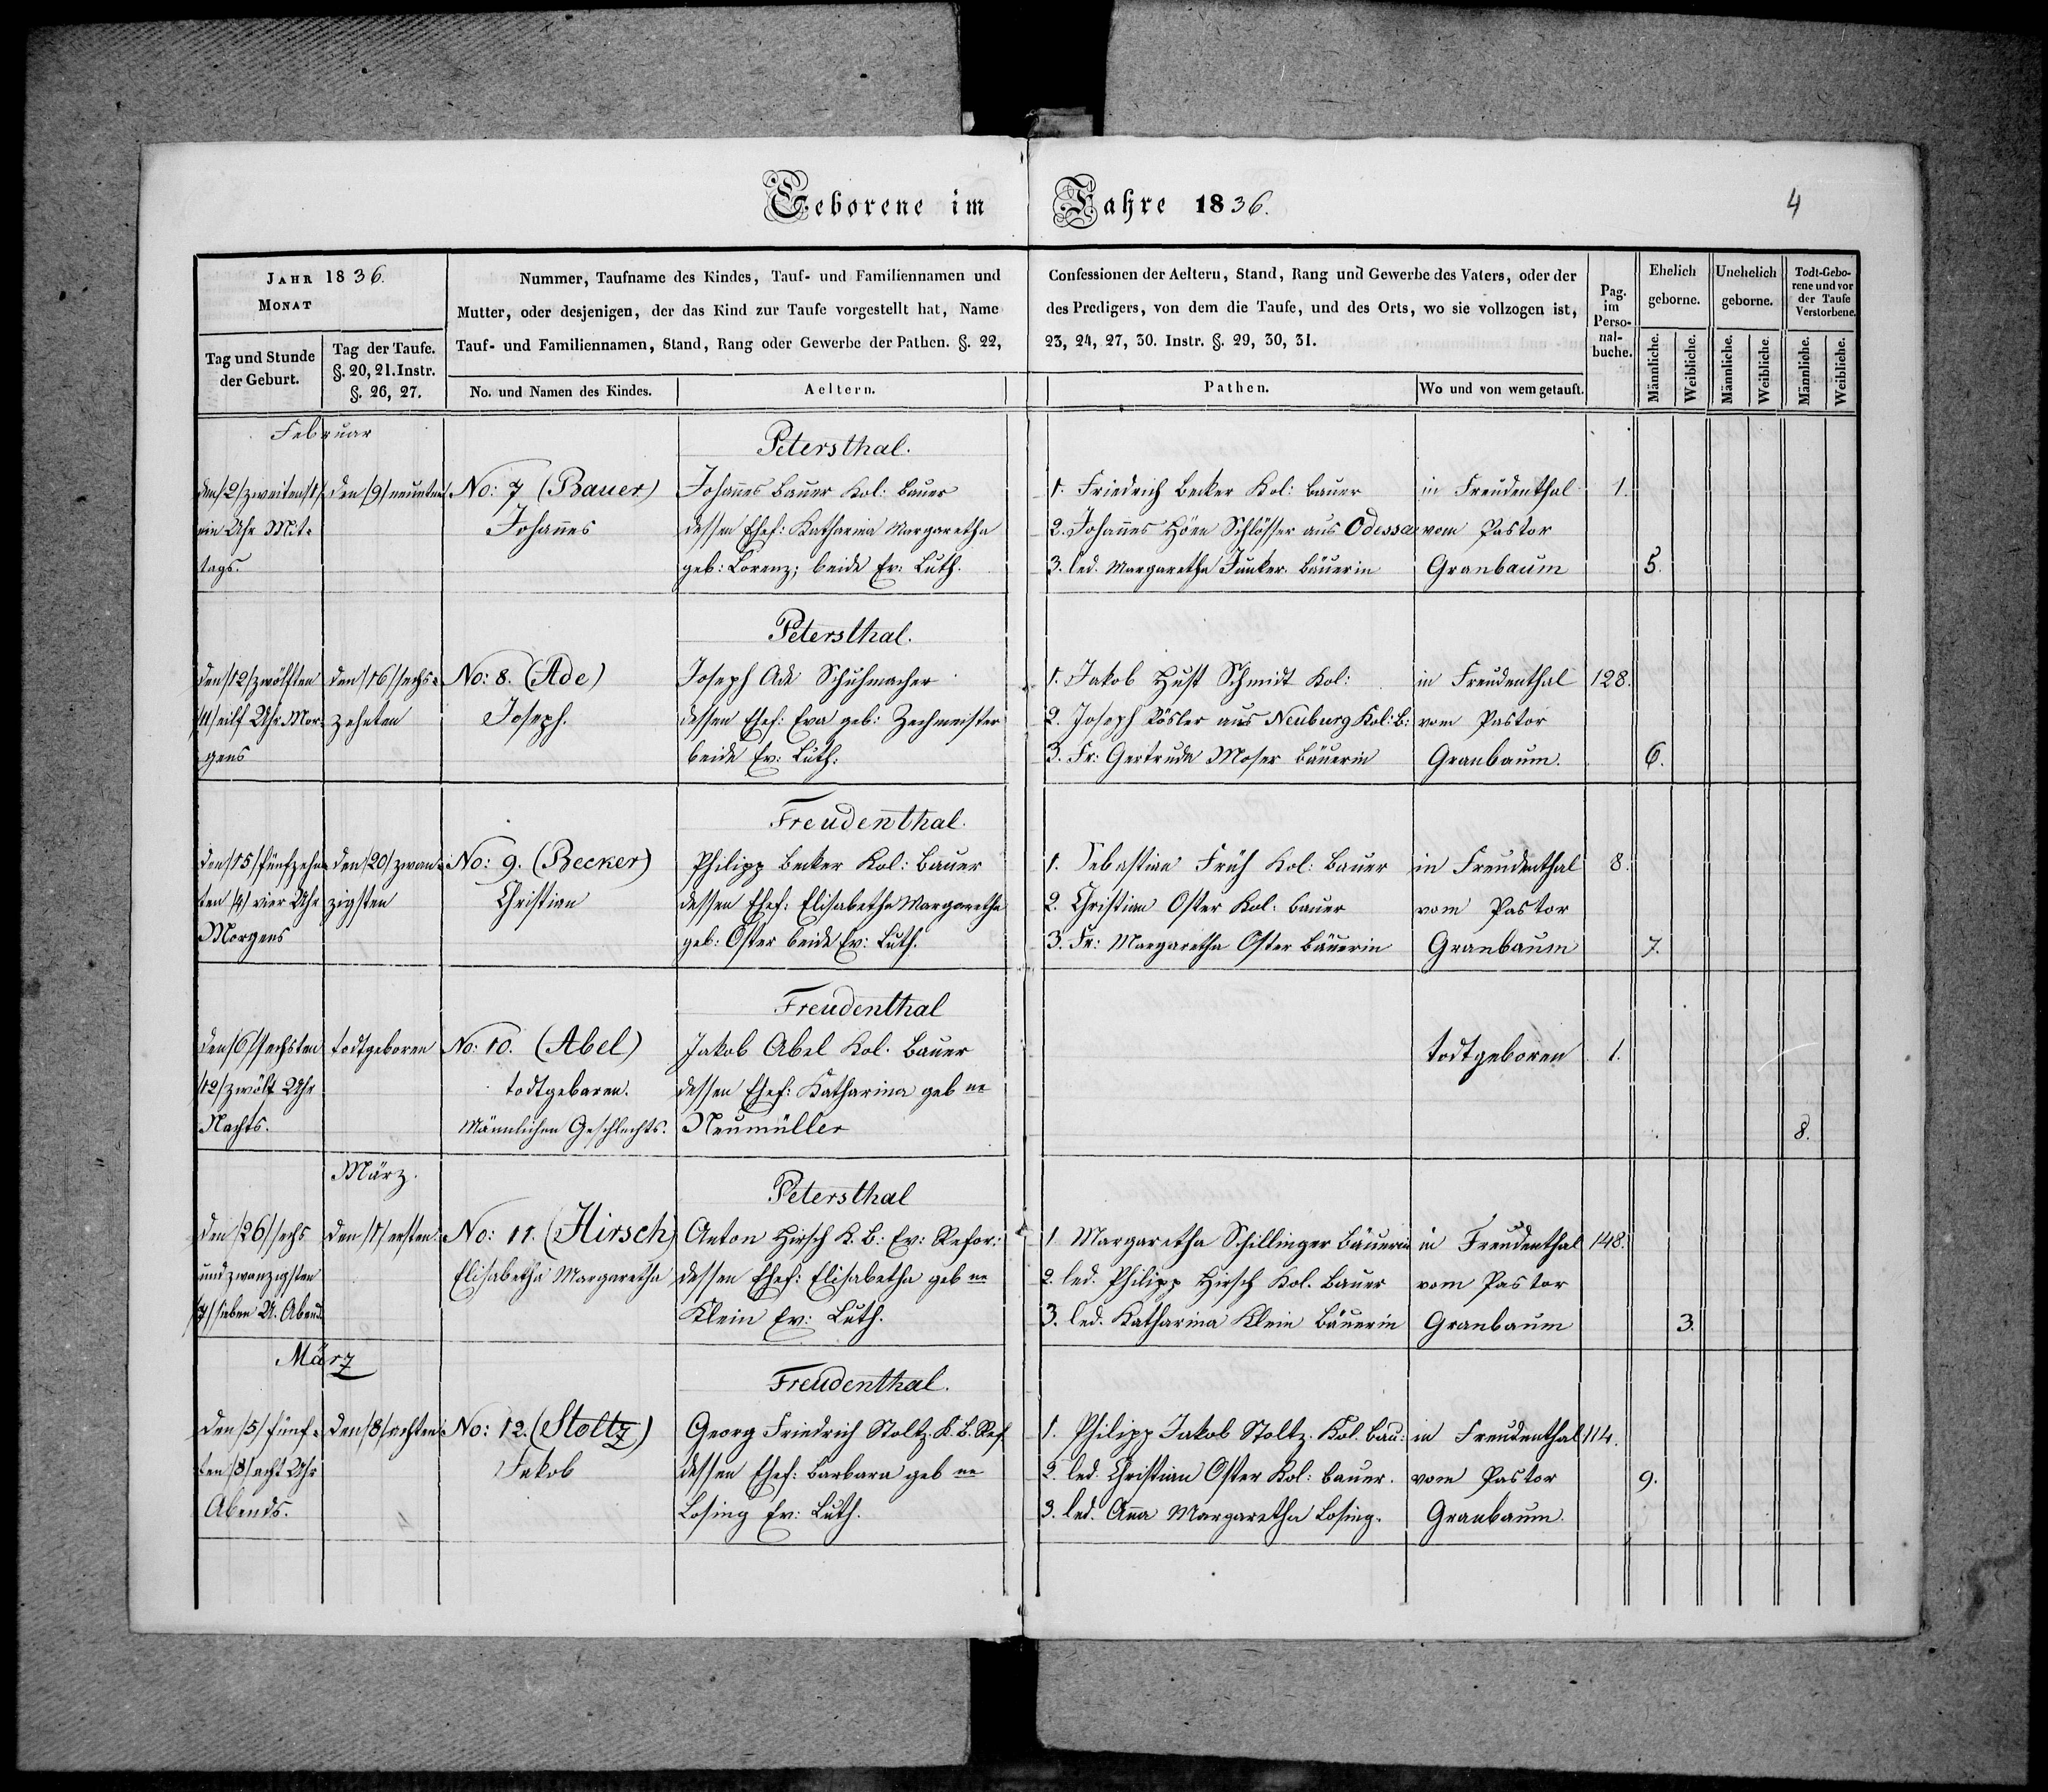 Geborene im Jahre 1836.
4
JAHR 1836.
MONAT
Tag und Stunde der Geburt.
Tag der Taufe. §. 20, 21. Instr. §. 26, 27.
Nummer, Taufname des Kindes, Tauf- und Familiennamen und
Mutter, oder desjenigen, der das Kind zur Taufe vorgestellt hat, Name
Tauf- und Familiennamen, Stand, Rang oder Gewerbe der Pathen. §. 22,
No. und Namen des Kindes.
Aeltern.
Confessionen der Aeltern, Stand, Rang und Gewerbe des Vaters, oder der
des Predigers, von dem die Taufe, und des Orts, wo sie vollzogen ist,
23, 24, 27, 30. Instr. §. 29, 30, 31.
Pathen.
Wo und von wem getauft.
Pag. im Perso-nal-buche.
Ehelich geborne.
Unehelich geborne.
Todt-Gebo-rene und vor der Taufe Verstorbene.
Männliche. Weibliche. Männliche. Weibliche. Männliche. Weibliche.
Februar
Petersthal.
den /2/ zweiten /1/ den /9/ neunten No: 7 (Bauer) Johannes Bauer Kol: Bauer 1. Friedrich Becker Kol: Bauer in Freudenthal 1.
ein Uhr Mit- Johannes dessen Ehef: Katharina Margaretha 2. Johannes Hörn Schlösser aus Odessa vom Pastor
tags. geb: Lorenz; beide Ev: Luth. 3. led. Margaretha Junker Bäuerin Granbaum 5.
Petersthal.
den /12/ zwölften den /16/ sechs- No: 8. (Ade) Joseph Ade Schuhmacher 1. Jakob Hust Schmidt Kol: in Freudenthal 128.
/11/ eilf Uhr Mor- zehnten Joseph. dessen Ehef: Eva geb: Zechmeister 2. Joseph Rösler aus Neuburg Kol: B: vom Pastor
gens beide Ev: Luth: 3. Fr: Gertruda Moser Bäuerin Granbaum. 6.
Freudenthal.
den /15/ fünfzehn- den /20/ zwan- No: 9. (Becker) Philipp Becker Kol: Bauer 1. Sebastian Früh Kol: Bauer in Freudenthal 8.
ten /4/ vier Uhr zigsten Christian dessen Ehef: Elisabetha Margaretha 2. Christian Oster Kol. Bauer vom Pastor
Morgens geb: Oster beide Ev: Luth. 3. Fr: Margaretha Oster Bäuerin Granbaum 7.
Freudenthal
den /6/ sechsten todtgeboren No: 10. (Abel) Jakob Abel Kol. Bauer todtgeboren 1.
/12/ zwölf Uhr todtgeboren. dessen Ehef: Katharina geb ne
Nachts. Männlichen Geschlechts. Neumüller 8.
März.
Petersthal
den /26/ sechs den /1/ ersten No: 11. (Hirsch) Anton Hirsch K. B: Ev: Refor: 1 Margaretha Schillinger Bäuerin in Freudenthal 148.
undzwanzigsten Elisabetha Margaretha dessen Ehef: Elisabetha geb ne 2. led. Philipp Hirsch Kol. Bauer vom Pastor
/7/ sieben U. Abend. Klein Ev: Luth. 3. led. Katharina Klein Bäuerin Granbaum 3.
März
Freudenthal.
den /5/ fünf- den /8/ achten No: 12. (Stoltz) Georg Friedrich Stoltz. K. B. Ref. 1. Philipp Jakob Stoltz. Kol. Bau: in Freudenthal 114.
ten /8/ acht Uhr Jakob dessen Ehef: Barbara geb ne 2. led. Christian Oster Kol: Bauer. vom Pastor 9.
Abends. Losing Ev: Luth. 3. led. Anna Margaretha Losing. Granbaum.